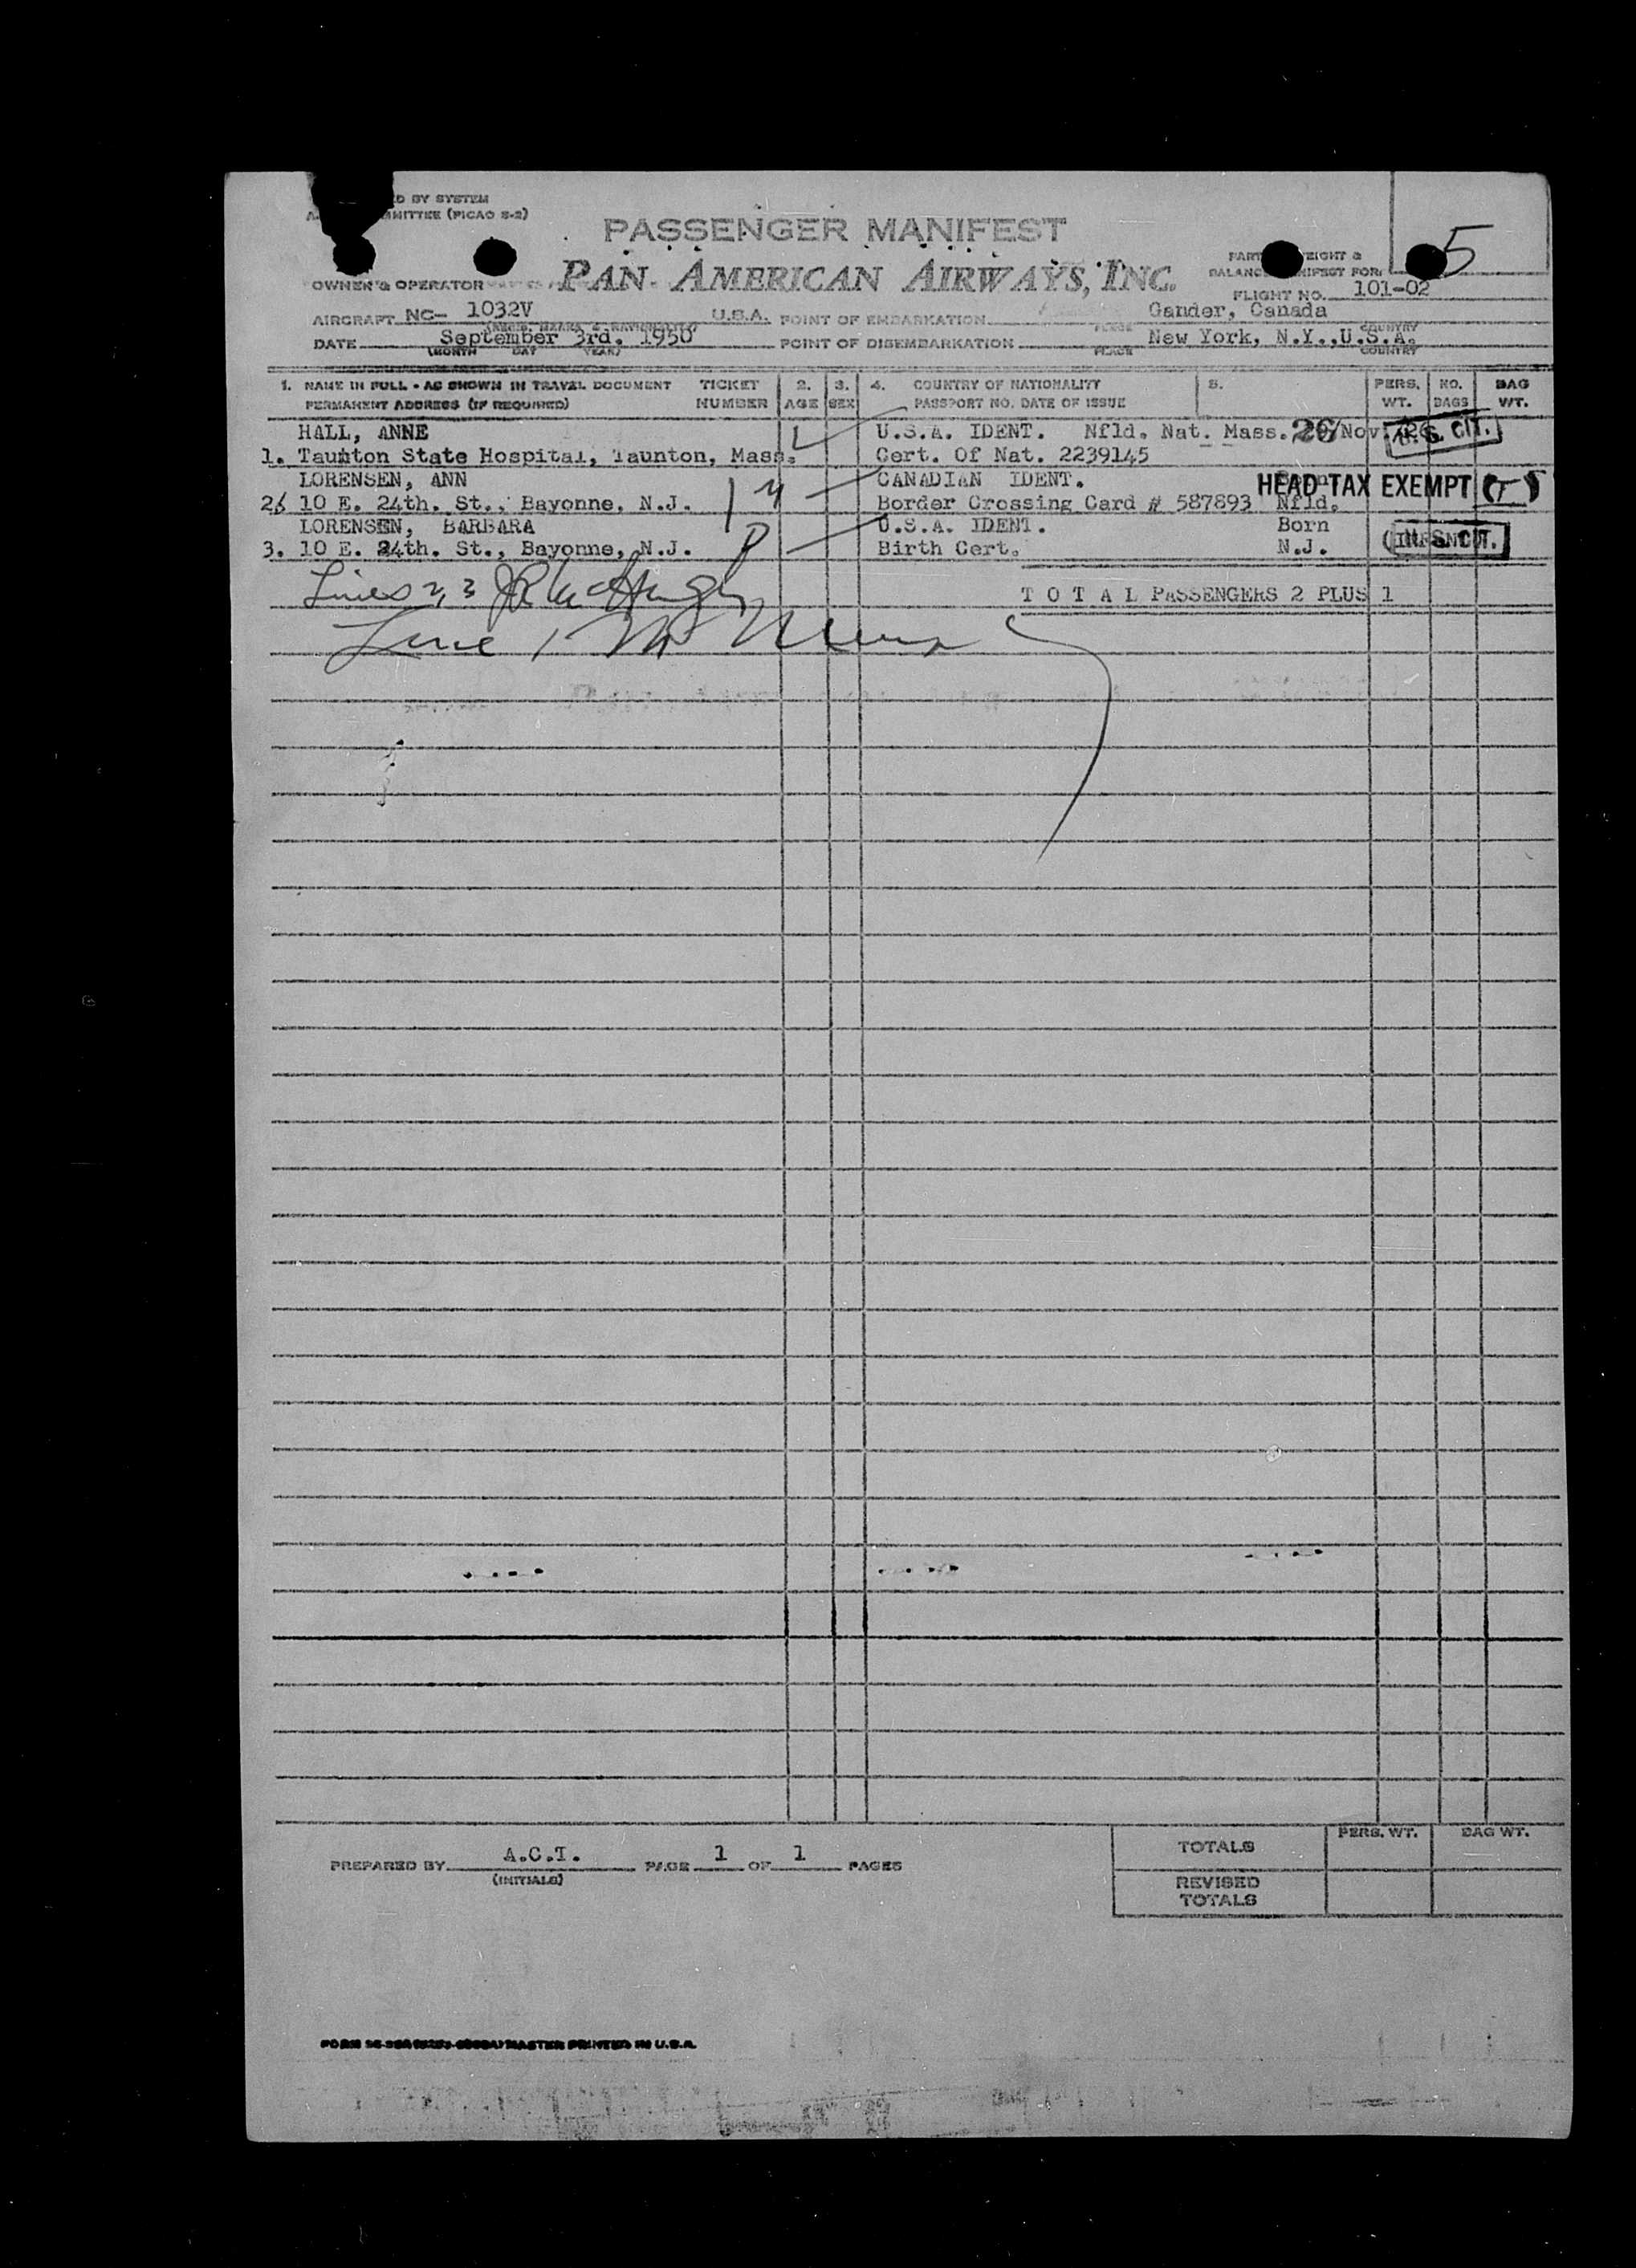 D BY SYSTEM
MMITTEE (PICAO S-2)
PASSENGER MANIFEST
5
OWNER'S OPERATOR PAN AMERICAN AIRWAYS, INC.
BALANCE MANIFEST FOR:
FLIGHT NO. 101-02
AIRCRAFT NC- 1032V U.S.A. POINT OF EMBARKATION Gander, Canada
DATE September 3rd. 1950 POINT OF DISEMBARKATION New York, N.Y.,U.S.A.
(MONTH DAY YEAR) PLACE COUNTRY
1. NAME IN FULL - AS SHOWN IN TRAVEL DOCUMENT TICKET 2. 3. 4. COUNTRY OF NATIONALITY 5. PERS. NO. BAG
PERMANENT ADDRESS (IF REQUIRED) NUMBER AGE SEX PASSPORT NO. DATE OF ISSUE WT. BAGS WT.
HALL, ANNE U.S.A. IDENT. Nfld. Nat. Mass. 26/Nov. U.S. CIT.
1. Taunton State Hospital, Taunton, Mass. Cert. Of Nat. 2239145
LORENSEN, ANN CANADIAN IDENT. HEAD TAX EXEMPT
2. 10 E. 24th. St., Bayonne, N.J. Border Crossing Card # 587893 Nfld.
LORENSEN, BARBARA U.S.A. IDENT. Born
3. 10 E. 24th. St., Bayonne, N.J. Birth Cert. N.J. (INFSNT) U.S. CIT.
Lines 2, 3
T O T A L PASSENGERS 2 PLUS 1
Line 1
PREPARED BY A.C.I. PAGE 1 OF 1 PAGES
(INITIALS)
PERS. WT. BAG WT.
TOTALS
REVISED
TOTALS
MASTER PRINTED IN U.S.A.